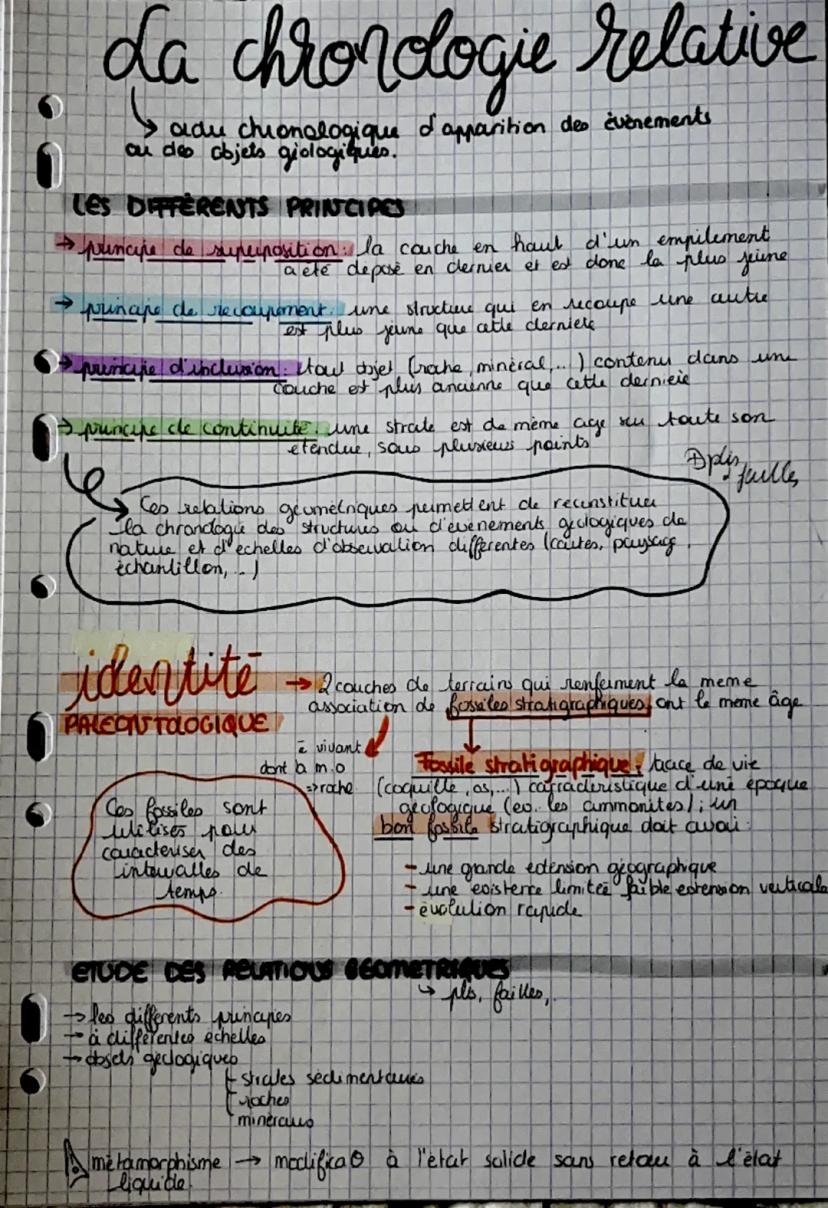 La chronologie relative
↳ ordre chronologique d'apparition des évènements
ou des objets géologiques.
LES DIFFÉRENTS PRINCIPES
→ principe de superposition : la couche en haut d'un empilement
a été déposé en dernier et est donc la plus jeune
→ principe de recoupement : une structure qui en recoupe une autre
est plus jeune que cette dernière
→ principe d'inclusion : tout objet (roche, minéral,...) contenu dans une
couche est plus ancienne que cette dernière
→ principe de continuité : une strate est de même age sur toute son
étendue, sous plusieurs points
plis
failles
Ces relations géométriques permettent de reconstituer
la chronologie des structures ou d'évènements géologiques de
nature et d'échelles d'observation différentes (cartes, paysage,
échantillon,...)
identité
PALEONTOLOGIQUE
→ 2 couches de terrains qui renferment la meme
association de fossiles stratigraphiques, ont le meme âge
ē vivant
dont la m.o
⇒ roche
Fossile stratigraphique : trace de vie
(coquille, os,...) caractéristique d'une époque
géologique (ex. les ammonites) ; un
bon fossile stratigraphique doit avoir :
- une grande extension géographique
- une existence limitée faible extension verticale
- évolution rapide
Ces fossiles sont
utilisés pour
caractériser des
intervalles de
temps.
ETUDE DES RELATIONS GEOMETRIQUES
↳ plis, failles,
→ les différents principes
→ à différentes échelles
→ objets géologiques
strates sédimentaires
roches
minéraux
métamorphisme → modifica⊖ à l'état solide sans retour à l'état
liquide.